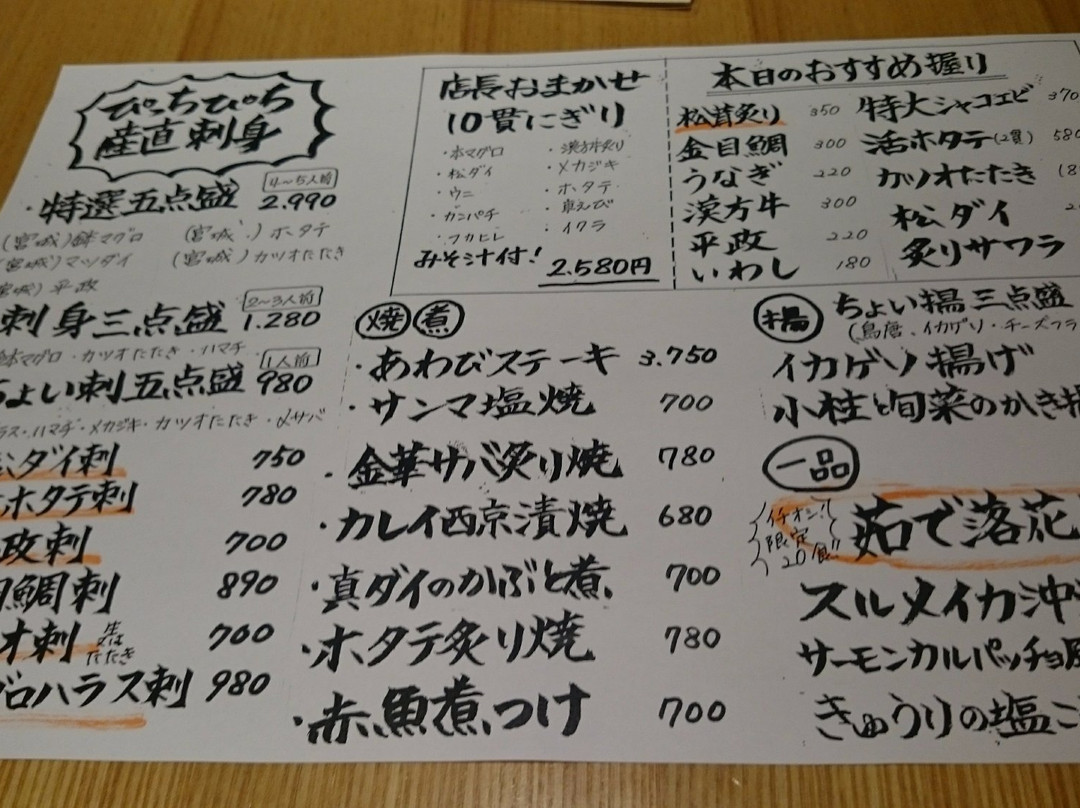 ぴっちぴち
産直刺身
・特選五点盛 4~5人前 2.990
(宮城)鉢マグロ (宮城)ホタテ
宮城)マツダイ (宮城)カツオたたき
宮城)平政
刺身三点盛 2~3人前 1.280
鉢マグロ・カツオたたき・ハマチ
ちょい刺五点盛 1人前 980
ラス・ハマチ・メカジキ・カツオたたき・〆サバ
ダイ刺 750
ホタテ刺 780
政刺 700
鯛刺 890
オ刺 生 たたき 760
グロハラス刺 980
店長おまかせ
10貫にぎり
・本マグロ ・漢方牛炙り
・松ダイ ・メカジキ
・ウニ ・ホタテ
・カンパチ ・車えび
・フカヒレ ・イクラ
みそ汁付! 2.580円
本日のおすすめ握り
松茸炙り 350
金目鯛 300
うなぎ 220
漢方牛 300
平政 220
いわし 180
特大シャコエビ 370
活ホタテ(2貫) 580
カツオたたき
松ダイ
炙りサワラ
焼 煮
・あわびステーキ 3.750
・サンマ塩焼 700
・金華サバ炙り焼 780
・カレイ西京漬焼 680
・真ダイのかぶと煮 700
・ホタテ炙り焼 780
・赤魚煮つけ 700
揚 ちょい揚三点盛
(鳥唐、イカゲソ・チーズフラ
イカゲソ揚げ
小柱と旬菜のかき揚
一品
イチオシ!! 限定20食!!
茹で落花
スルメイカ沖
サーモンカルパッチョ風
きゅうりの塩こ